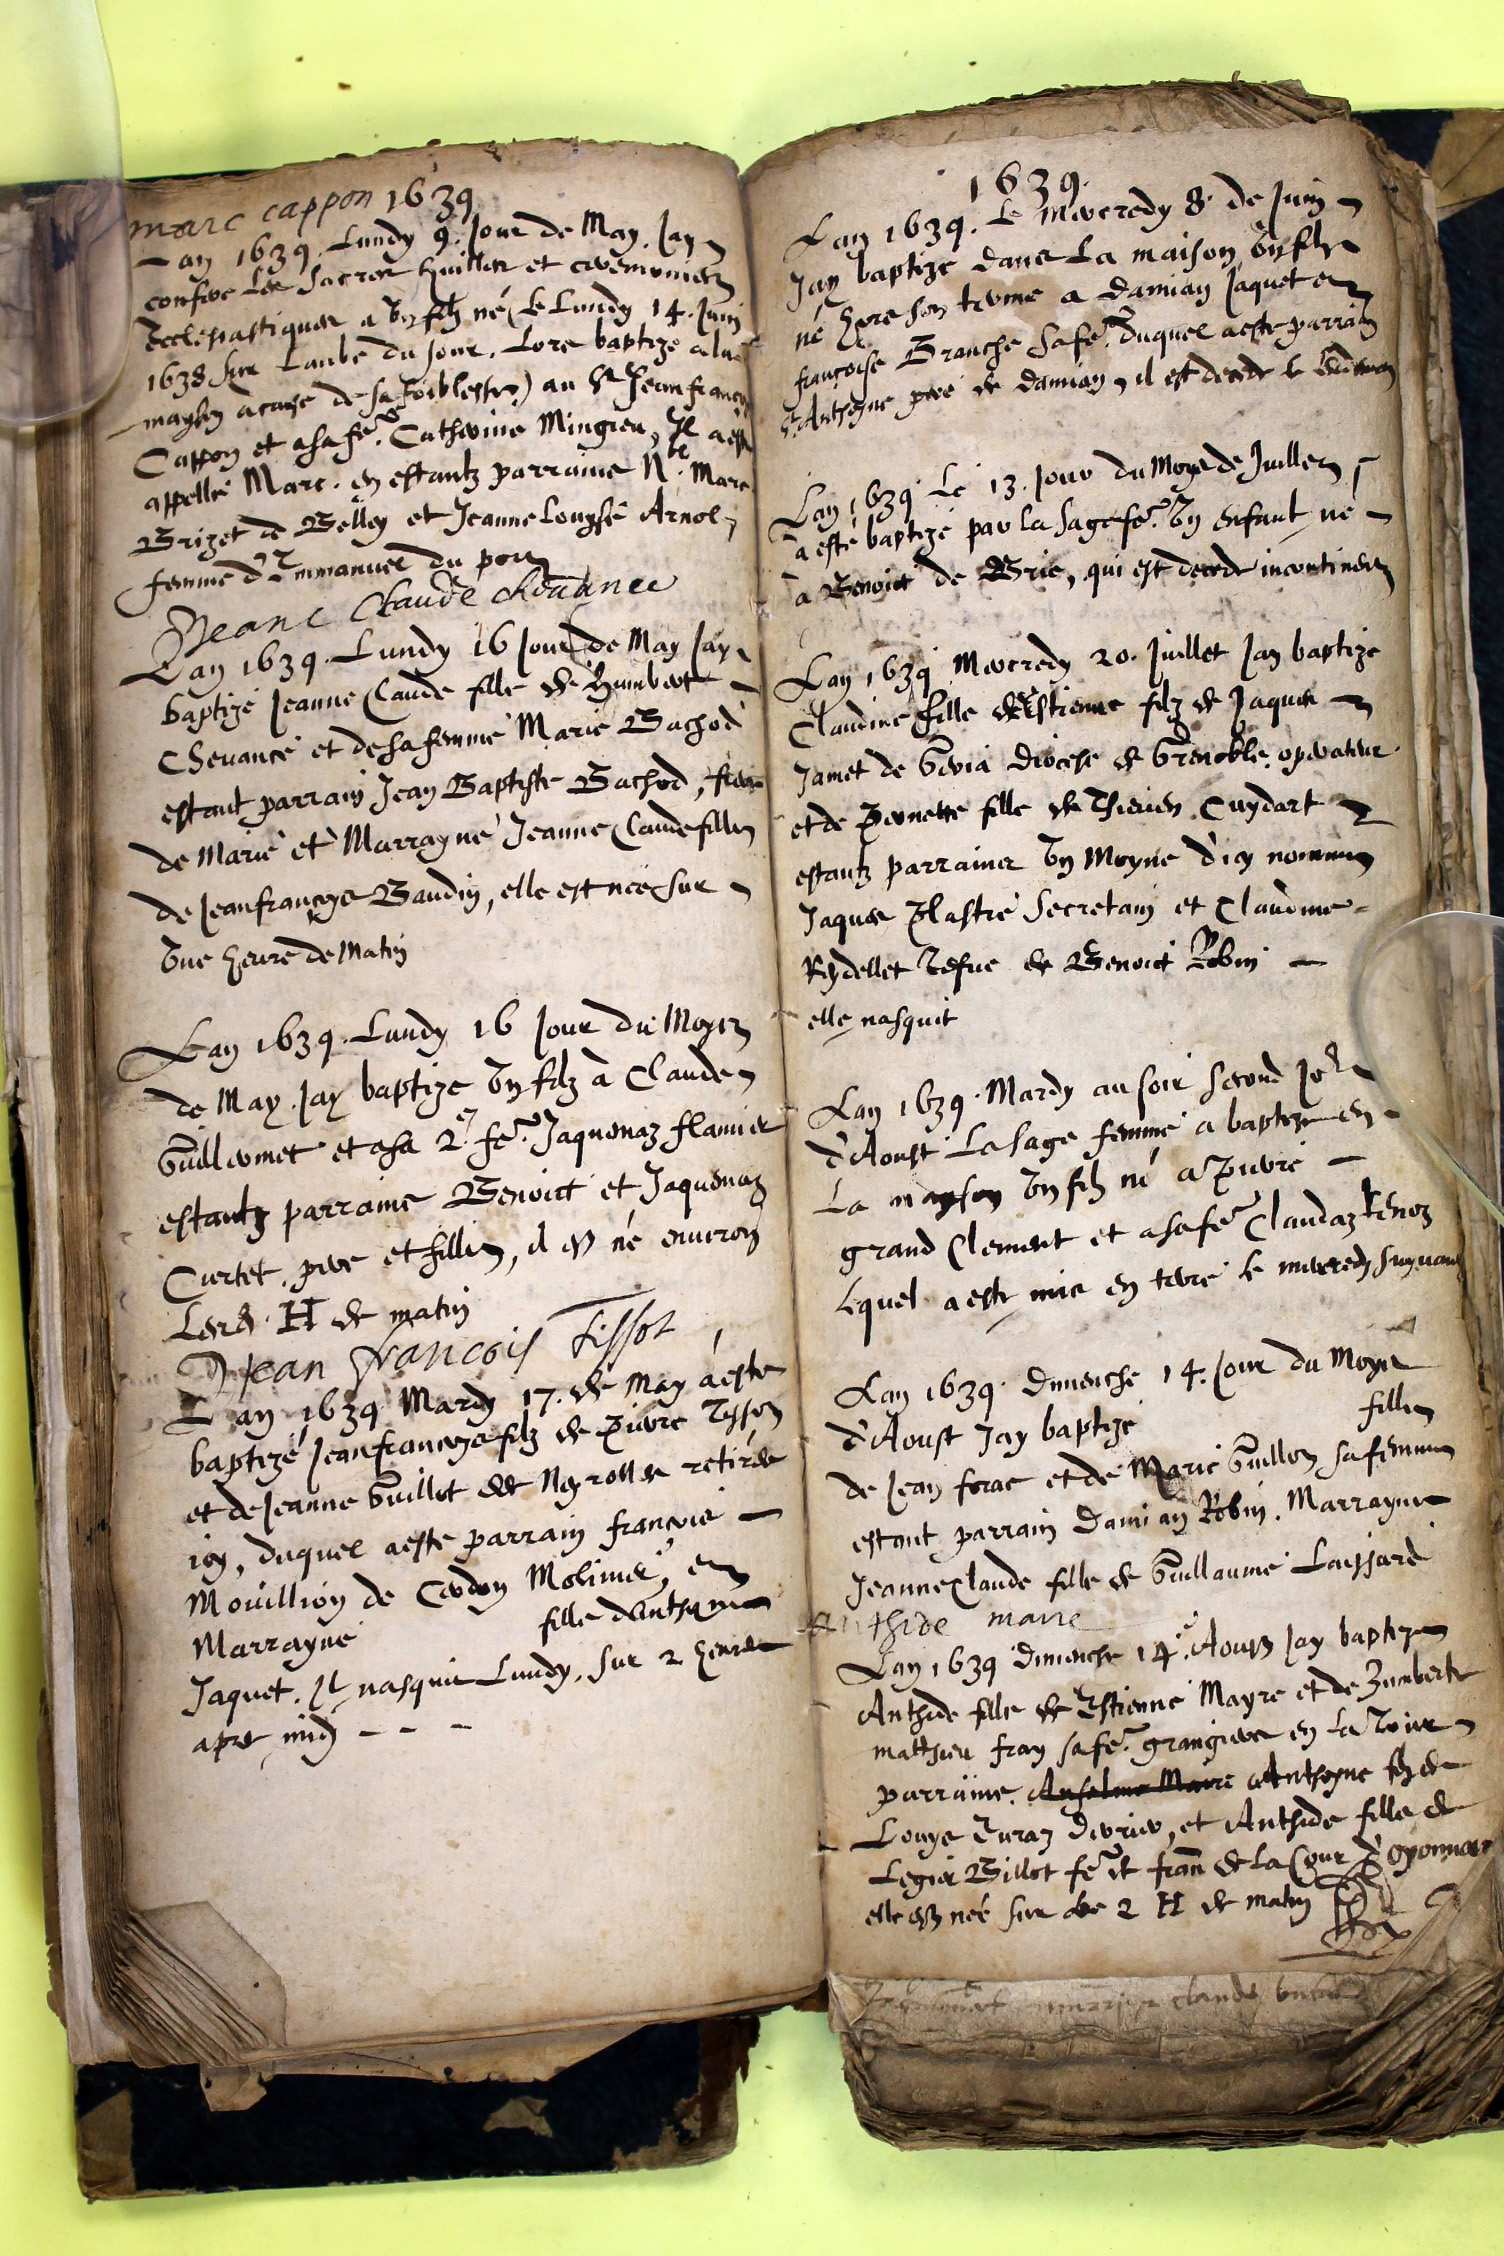 marc cappon 1639
Lan 1639. Lundy 9. Jour de May. Jay
confere les Sacrez huilles et ceremonies
Ecclesiastiques a Un filz né Le Lundy 14. Juin
1638 sur Laube du Jour. Lors baptizé a la
mayson a cause de sa foiblesse) au Sr Jean françoys
Cappon et a sa fe. Catherine Mingrea, Il a esté
appellé Marc. en estantz parrains Nble. Marc
Brizet de Belley et Jeanne Louyse Arnol
femme d'Emmanuel du pon
Jeane Claude chevance
Lan 1639. Lundy 16 Jour de May Jay
baptizé Jeanne Claude fille de Humbert
Chevance et de sa femme Marie Bachod
estant parrain Jean Baptiste Bachod, frere
de Marie et Marrayne Jeanne Claude fille
de Jeanfrançoys Baudin, elle est née sur
Une heure de Matin
Lan 1639. Lundy 16 Jour du Moys
de May. Jay baptizé Un filz à Claude
Guillermet et a sa 2e. fe. Jaquemaz flamier
estantz parrains Benoict et Jaquemaz
Curtet. pere et fille, il est né environ
Les 8. H de matin
Jean francois Tissot
Lan 1639 Mardy 17. de May a esté
baptizé Jeanfrancoys filz de Pierre Tysson
et de Jeanne Guillot de Neyrolles retirés
icy, duquel a esté parrain francois
Mouillion de Cerdon Molinier, et
Marrayne fille d'Anthoyne
Jaquet. Il nasquit Lundy. sur 2 heures
apres midi - - -
1639.
Lan 1639. Le Mercredy 8. de Juin
Jay baptizé dans La maison Un filz
né hors son terme a Damian Jaquet et
françoise Branche sa fe. Duquel a esté parrain
Anthoyne pere de Damian, il est decedé le lendemain
Lan 1639. Le 13. Jour du Moys de Juillet
a esté baptizé par la sage fe. Un enfant né
a Benoict de Brie, qui est decedé incontinent
Lan 1639 Mercredy 20. Juillet Jay baptizé
Claudine fille de Estienne filz de Jaques
Jamet de diocese de Grenoble. operateur
et de Pernette fille de Cuydart
estantz parrains Un Moyne d'icy nommé
Jaques Plastre Secretain et Claudine
Reydellet Vefve de Benoict Robin
elle nasquit
Lan 1639. Mardy au soir second Jor
d'Aoust La sage femme a baptizé en
La mayson Un filz né a Pierre
grand Clement et a sa fe Claudaz
Lequel a esté mis en terre le mercredy suyvant
Lan 1639. Dimenche 14. Jour du Moys
d'Aoust Jay baptizé fille
de Jean forac et de Marie Guillon sa femme
estant parrain Damian Robin. Marrayne
Jeanne Claude fille de Guillaume Laissard
Anthide maire
Lan 1639 Dimenche 14e. Aoust Jay baptizé
Anthide fille de Estienne Mayre et de Humberte
matthieu fray sa fe. grangiers en La Voire
parrains. Anselme Maire Anthoyne filz de
Louys Juraz Derrier, et Anthide fille de
Legier Billot fe de fran de La Cour d'Oyonnax
elle est née sur les 2 H de matin